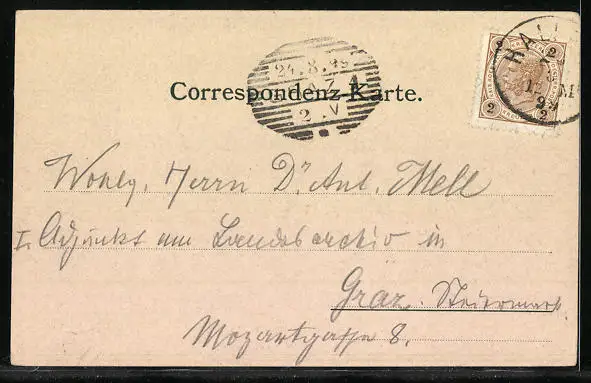 Correspondenz-Karte.
24.8.99
2.V
2 2
HALL
99
2 2
Wohlg. Herrn Dr. Ant. Mell
I. Adjunkt am Landesarchiv in
Graz. Steiermark.
Mozartgasse 8.